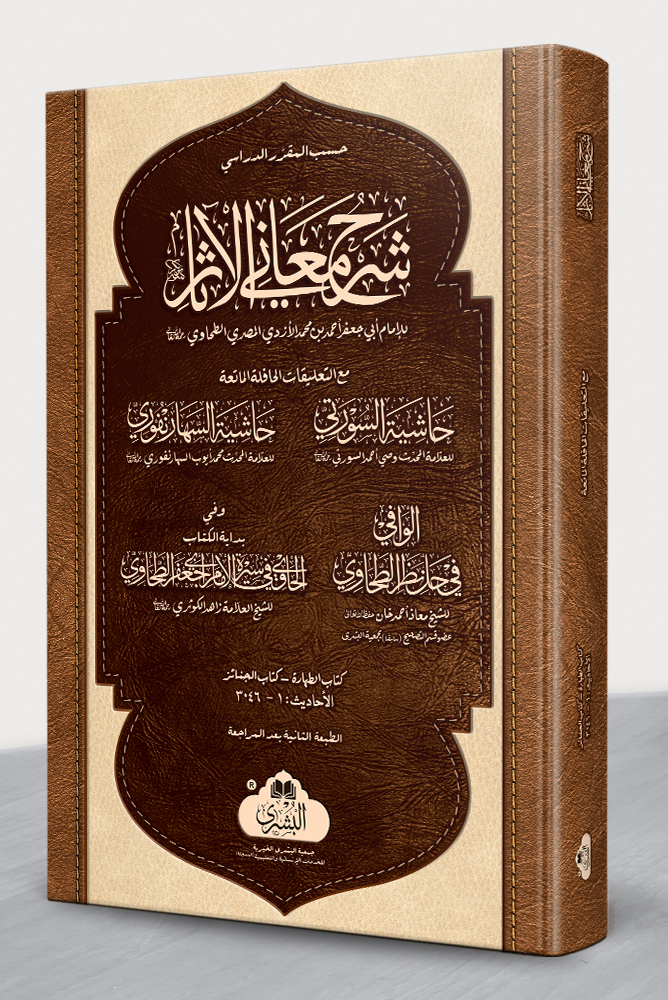 حسب المقرر الدراسي
شرح معاني الآثار
للإمام أبي جعفر أحمد بن محمد الأزدي المصري الطحاوي
مع التعليقات الحافلة الماتعة
حاشية السورتي
للعلامة المحدث وصي أحمد السورتي
حاشية السهارنفوري
للعلامة المحدث محمد أيوب السهارنفوري
الوافي
في حل نظر الطحاوي
للشيخ معاذ أحمد خان حفظه الله تعالى
عضو قسم التصحيح (سابقا) بجمعية البشرى
وفي
بداية الكتاب
الحاوي في سيرة الإمام أبي جعفر الطحاوي
للشيخ العلامة زاهد الكوثري
كتاب الطهارة – كتاب الجنائز
الأحاديث: ١ - ٣٠٤٦
الطبعة الثانية بعد المراجعة
®
البشرى
جمعية البشرى الخيرية
للخدمات الإنسانية والتعليمية
شرح معاني الآثار
مع التعليقات الحافلة الماتعة
كتاب الطهارة – كتاب الجنائز
الأحاديث: ١ - ٣٠٤٦
البشرى